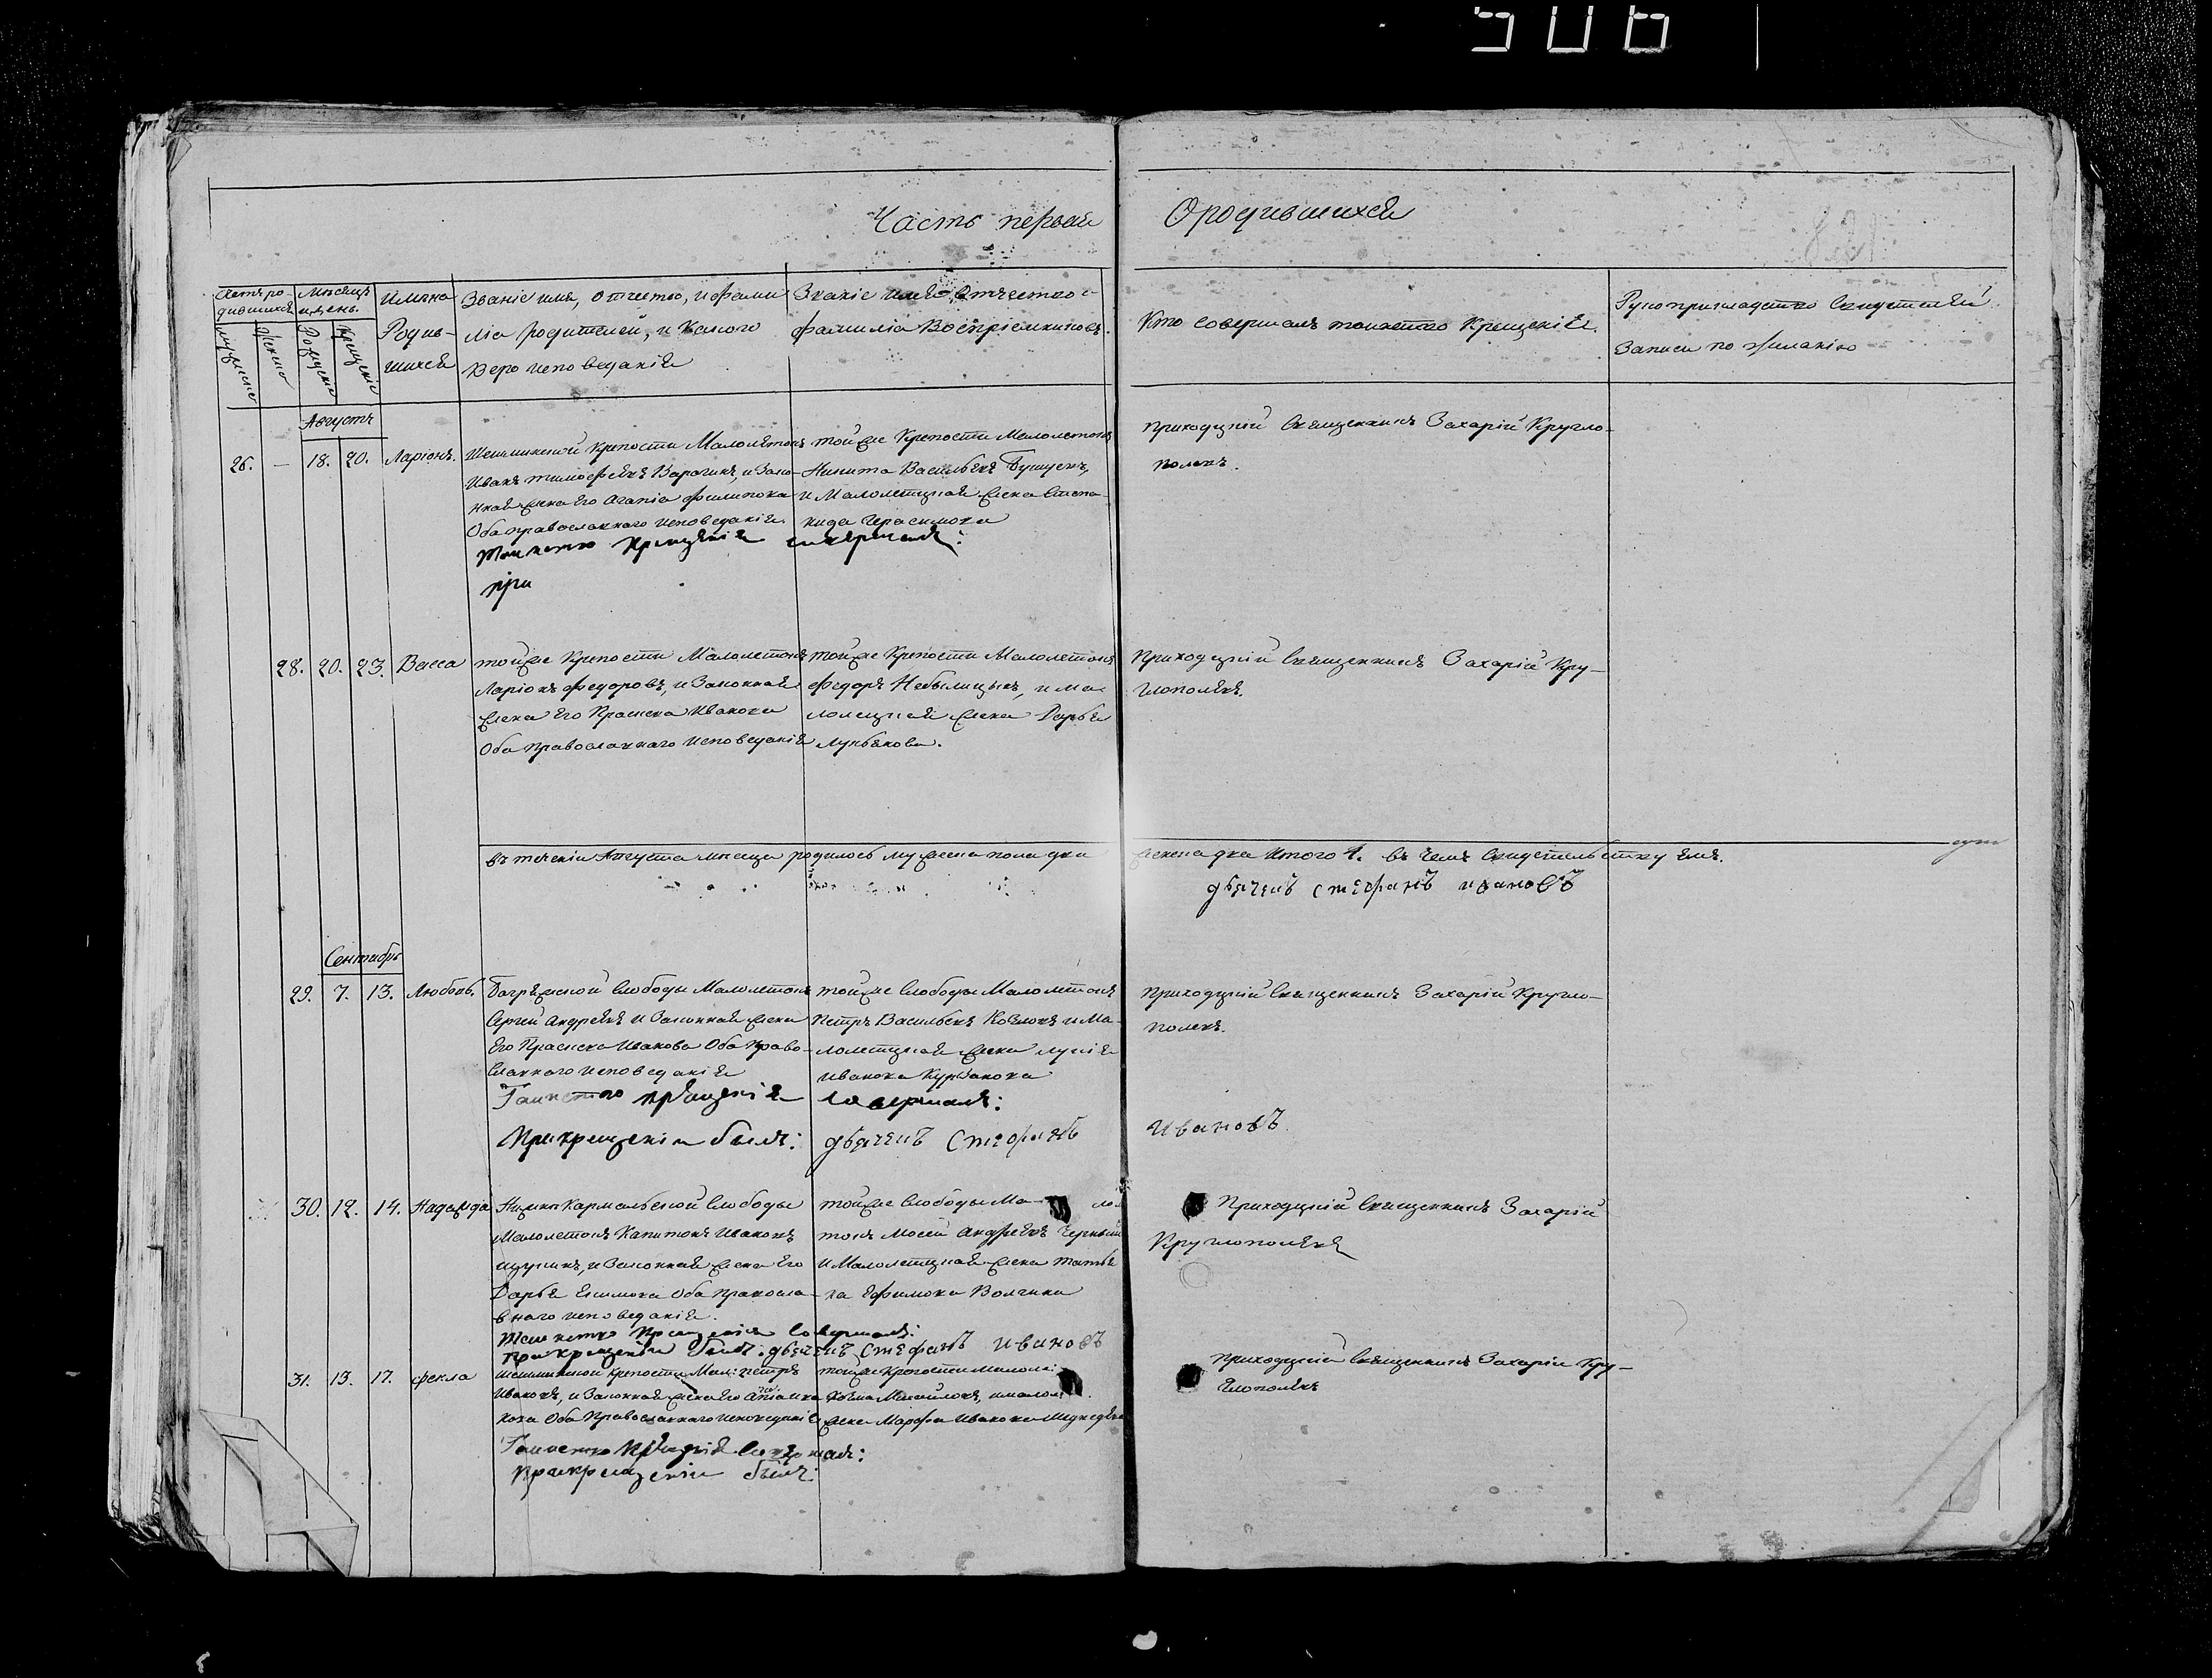 506
Часть первая
О родившихся
Счетъ ро-
дившихся
Мѣсяцъ
и день.
Имена
Родив-
шихся
Мужеска
Женска
Рожденія
Крещенія
Званіе имя, отчество, и фами
лія родителей, и какого
Вероисповеданія
Званіе имя, отчество и
фамилія Воспріемниковъ.
Кто совершалъ таинство Крещенія.
Рукоприкладство Свидетелей
Записи по желанію
Августъ
26. — 18. 20. Ларіонъ.
Шешминской крепости Малолетокъ
Иванъ тимофеевъ Варагинъ, и Зако-
нная жена его Агапіа филипова
Оба православнаго исповеданія.
таинство Крещенія совершалъ:
при
тойже Крепости Малолетокъ
Никита Васильевъ
и Малолетцкая жена Степа-
нида Герасимова
приходцкій Священникъ Захарій Кругло-
полевъ.
28. 20. 23. Васса
тойже Крепости Малолетокъ
Ларіонъ федоровъ, и Законная
жена Его Праскева Иванова
Оба православнаго исповеданія
тойже Крепости Малолетокъ
федоръ Небылицынъ, и ма-
лолецкая жена Дарья
Лукьянова.
Приходцкій Священникъ Захарій Кру-
глополевъ.
въ теченіи Августа месяца родилось мужеска пола два
женска два Итого 4. въ чемъ Свидетельствуемъ.
дьячекъ Стефанъ ивановъ
Сентябрь
29. 7. 13. Любовь.
Багряжской Слободы Малолетокъ
Сергей Андреевъ и Законная жена
Его Праскева Иванова Оба право-
славнаго исповеданія
Таинство крещенія совершалъ:
При крещеніи былъ: дьячекъ Стефанъ
Ивановъ
тойже Слободы Малолетокъ
Петръ Васильевъ Козловъ и Ма-
лолетцкая жена
иванова Курзакова
приходцкій Священникъ Захарій Кругло-
полевъ.
30. 12. 14. Надежда
Кармальской Слободы
Малолетокъ Капитонъ Ивановъ
и Законная жена Его
Дарья Екимова Оба правосла-
внаго исповеданія.
Таинство Крещенія Совершалъ:
При крещеніи былъ: дьячекъ Стефанъ ивановъ
тойже Слободы Ма ло
токъ Мосей Андреевъ
и Малолетцкая жена татья
на Ефимова Волгина
Приходцкій Священникъ Захарій
Круглополевъ
31. 13. 17. фекла
Шешминской крепости Мал: петръ
Ивановъ, и Законная жена Его
Оба Православнаго исповеданія
Таинство Крещенія Совершалъ:
При крещеніи былъ:
тойже Крепости малоле:
Козма Михайловъ, и малол:
жена Марфа Иванова
Приходцкій Священникъ Захарій Кру-
глополевъ